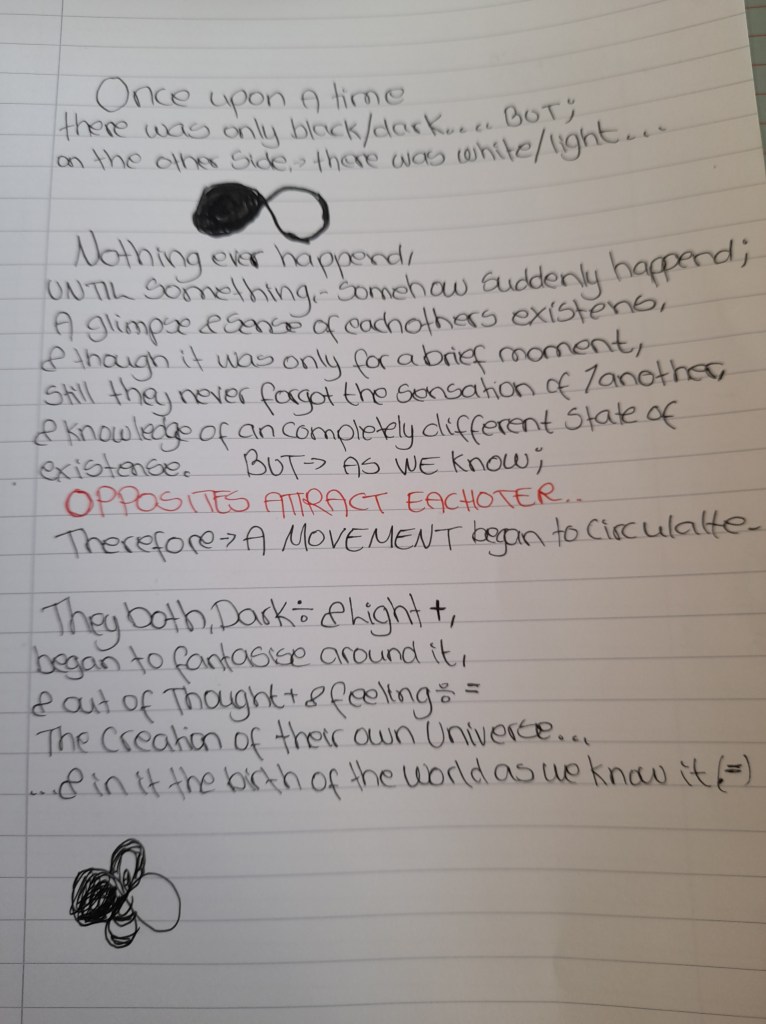 Once upon A time
there was only black/dark..... BUT;
on the other side,→ there was white/light...
Nothing ever happend,
UNTIL something,- somehow suddenly happend;
A glimpse & sense of eachothers existens,
& though it was only for a brief moment,
Still they never forgot the sensation of 1another,
& knowledge of an completely different state of
existense. BUT→ AS WE KNOW;
OPPOSITES ATTRACT EACHOTER..
Therefore→ A MOVEMENT began to circulatte-
They both, Dark÷ & Light +,
began to fantasise around it,
& out of Thought+ & feeling÷ =
The Creation of their own Universe...
...& in it the birth of the world as we know it (=)